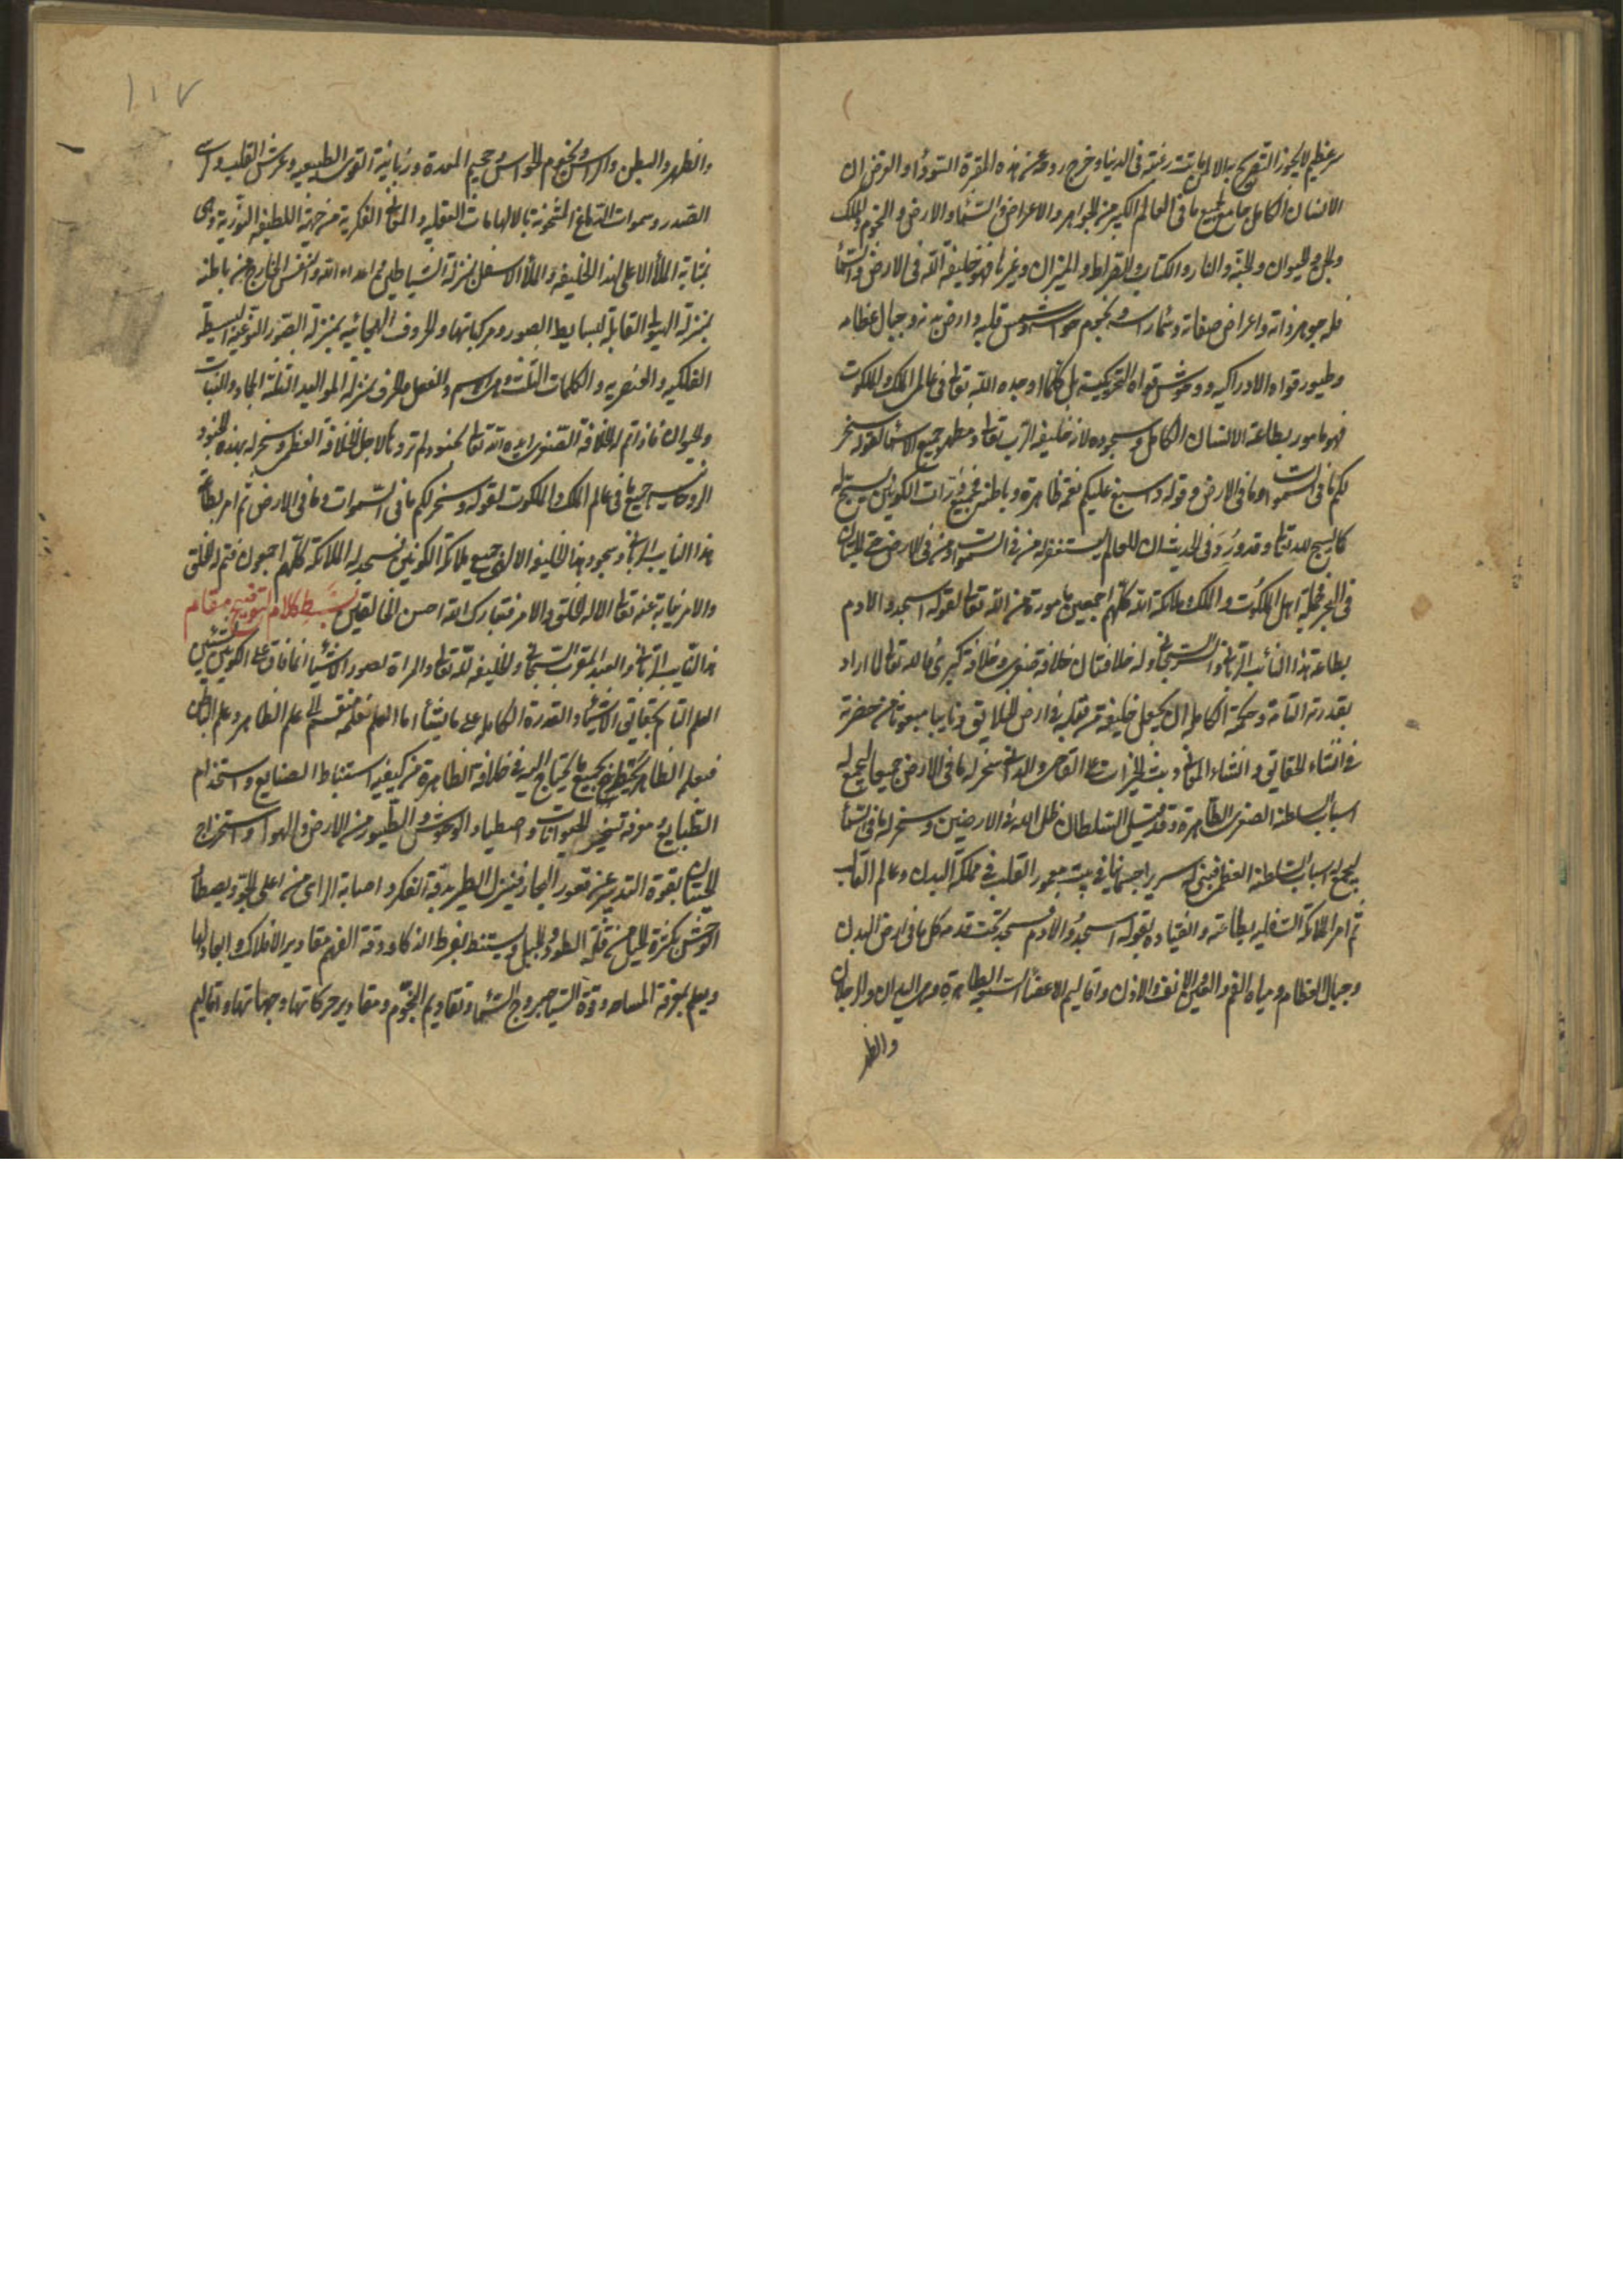 سر عظيم لا يجوز التصريح به الا لمن ماتت رغبته فى الدنيا وخرج روحه عن هذه المقبرة السوداء والغرض ان
الانسان الكامل جامع لجميع ما فى العالم الكبير من الجواهر والاعراض والسماء والارض والنجوم والملك
والجن والحيوان والجنة والنار والكتاب والصراط والميزان وغيرها فهو خليفة الله فى الارض والسماء
فله جوهر ذاته واعراض صفاته وسماء راسه ونجوم حواسه وشمس قلبه وارض بدنه وجبال عظامه
وطيور قواه الادراكية ووحوش قواه التحريكية بل كلما اوجده الله تعالى فى عالمى الملك والملكوت
فهو مامور بطاعة الانسان الكامل وسجوده لانه خليفة الرب تعالى ومظهر جميع الاسماء لقوله سخر
لكم ما فى السموات وما فى الارض وقوله واسبغ عليكم نعمه ظاهرة وباطنة فجميع ذرات الكونين يسبح له
كما يسبح لله تعالى وقد ورد فى الحديث ان للعالم يستغفر له من فى السموات ومن فى الارض حتى الحيتان
فى البحر فجملة اهل الملكوت والملك ملائكة الله كلهم اجمعين مامورة من الله تعالى لقوله اسجدوا لادم
بطاعة هذا النائب الربانى والسر السبحانى وله خلافتان خلافة صغرى وخلافة كبرى فالله تعالى لما اراد
بقدرته التامة وحكمته الكاملة ان يجعل خليفة من قبله فى ارض الخلايق ونايبا مبعوثا من حضرته
فى انشاء الحقايق وانشاء المعانى وبث الخيرات على القاصى والدانى سخر له ما فى الارض جميعا ليجمع له
اسباب السلطنة الصغرى الظاهرة وقد قيل السلطان ظل الله فى الارضين وسخر له ما فى السماء
ليجمع له اسباب السلطنة العظمى فبنى له سريرا جسمانيا فى بيت معمور القلب فى مملكة البدن وعالم القالب
ثم امر الملائكة السفلية بطاعته وانقياده بقوله اسجدوا لادم فسجد تحت قدمه كل ما فى ارض البدن
وجبال العظام ومياه الفم والعين والانف والاذن واقاليم الاعضاء السبعة الظاهرة وهى اليدان والرجلان
والظهر
والظهر والبطن والراس ونجوم الحواس وجحيم المعدة وزبانية القوى الطبيعيه وعرش القلب وكرسى
الصدر وسموات الدماغ المشحونة بالالهامات العقليه والمعانى الفكرية من جهة اللطيفه النورية وهى
بمثابة الملأ الاعلى لهذا الخليفه والملأ الاسفل بمنزلة الشياطين هم اعداء الله والنفس الخارج من باطنه
بمنزلة الهيولى القابلة لبسايط الصور ومركباتها والحروف الهجائيه بمنزلة الصور النوعية البسيطة
الفلكيه والعنصريه والكلمات الثلث وهى الاسم والفعل والحرف بمنزلة المواليد الثلثة الجماد والنبات
والحيوان فاذا تم له الخلافة الصغرى ايده الله تعالى بجنود لم تروها لاجل الخلافة العظمى وسخر له بهذه الجنود
الروحانيه جميع ما فى عالم الملك والملكوت لقوله وسخر لكم ما فى السموات وما فى الارض ثم امر بطاعة
هذا النايب الربانى وسجود هذا الخليفه الالهى جميع ملائكة الكونين فسجد له الملائكة كلهم اجمعون فتم له الخلق
والامر نيابة عنه تعالى الا له الخلق والامر فتبارك الله احسن الخالقين بسط كلام لتوضيح مقام
هذا النايب الربانى والعبد المقرب السبحانى والخليفه لله تعالى والمرآة لصور الاشيا انما فاق على الكونين بشيئين
العلم التام بحقايق الاشيا والقدرة الكاملة على ما يشأ اما العلم فعلمه منقسم الى علم الظاهر وعلم الباطن
فبعلم الظاهر يطلع بجميع ما يحتاج اليه فى خلافته الظاهرة من كيفيه استنباط الصنايع واستخدام
الطبايع ومعرفة تسخير الحيوانات واصطياد الوحوش والطيور من الارض والهوا واستخراج
الحيتان بقوة التدبير عن قعور البحار فينزل الطير بدقة الفكر واصابة الراى من اعلى الجو ويصطاد
الوحش بكثرة الحيل من قلة الطود والجبل ويستنبط بفرط الذكاء ودقة الفهم مقادير الافلاك وابعادها
ويعلم بمعرفة المساحه وقوة السياحه بروج السماء وتقاويم النجوم ومقادير حركاتها وجهاتها واقاليم